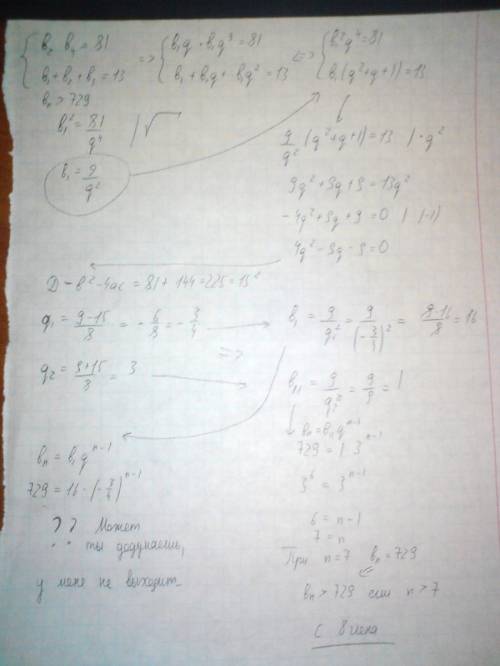 { b₂ b₄ = 81
b₁ + b₂ + b₃ = 13 => { b₁q · b₁q³ = 81
b₁ + b₁q + b₁q² = 13 <=> { b₁²q⁴ = 81
b₁(q²+q+1) = 13
bₙ > 729
b₁² = 81/q⁴ | √
b₁ = 9/q²
9/q² (q²+q+1) = 13 | · q²
9q² + 9q + 9 = 13q²
-4q² + 9q + 9 = 0 | (-1)
4q² - 9q - 9 = 0
D = b² - 4ac = 81 + 144 = 225 = 15²
q₁ = (9-15)/8 = -6/8 = -3/4
b₁ = 9/q₁² = 9/(-3/4)² = (9·16)/9 = 16
=>
q₂ = (9+15)/8 = 3
b₁₁ = 9/q₂² = 9/9 = 1
bₙ = b₁qⁿ⁻¹
729 = 16 · (-3/4)ⁿ⁻¹
?? Может
ты додумаешь,
у меня не выходит..
bₙ = b₁qⁿ⁻¹
729 = 1 · 3ⁿ⁻¹
3⁶ = 3ⁿ⁻¹
6 = n-1
7 = n
При n = 7 bₙ = 729
<=
bₙ > 729 если n > 7
с 8 члена